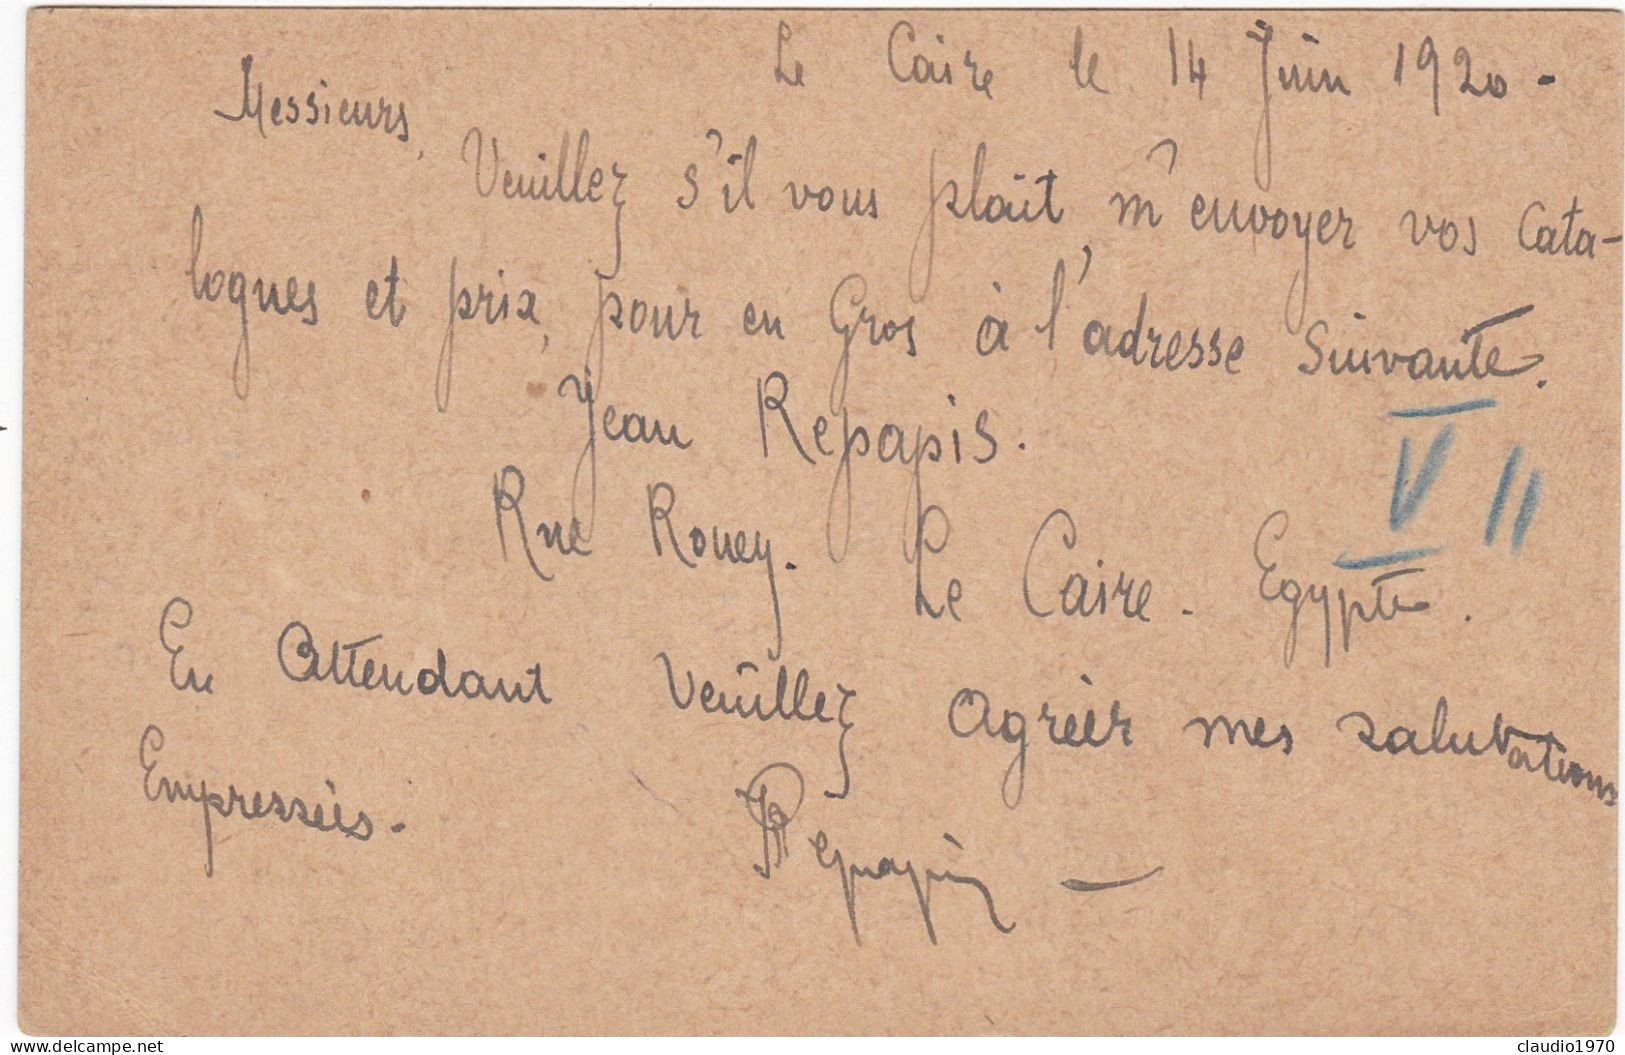 Le Caire le 14 Juin 1920 -
Messieurs,
Veuillez s'il vous plaît, m'envoyer vos Cata-
logues et prix, pour en Gros à l'adresse Suivante.
Jean Repapis.
Rue Rouey. Le Caire - Egypte.
V II
En Attendant Veuillez Agréer mes salutations
Empressées.
Repapis
delcampe.net
claudio1970